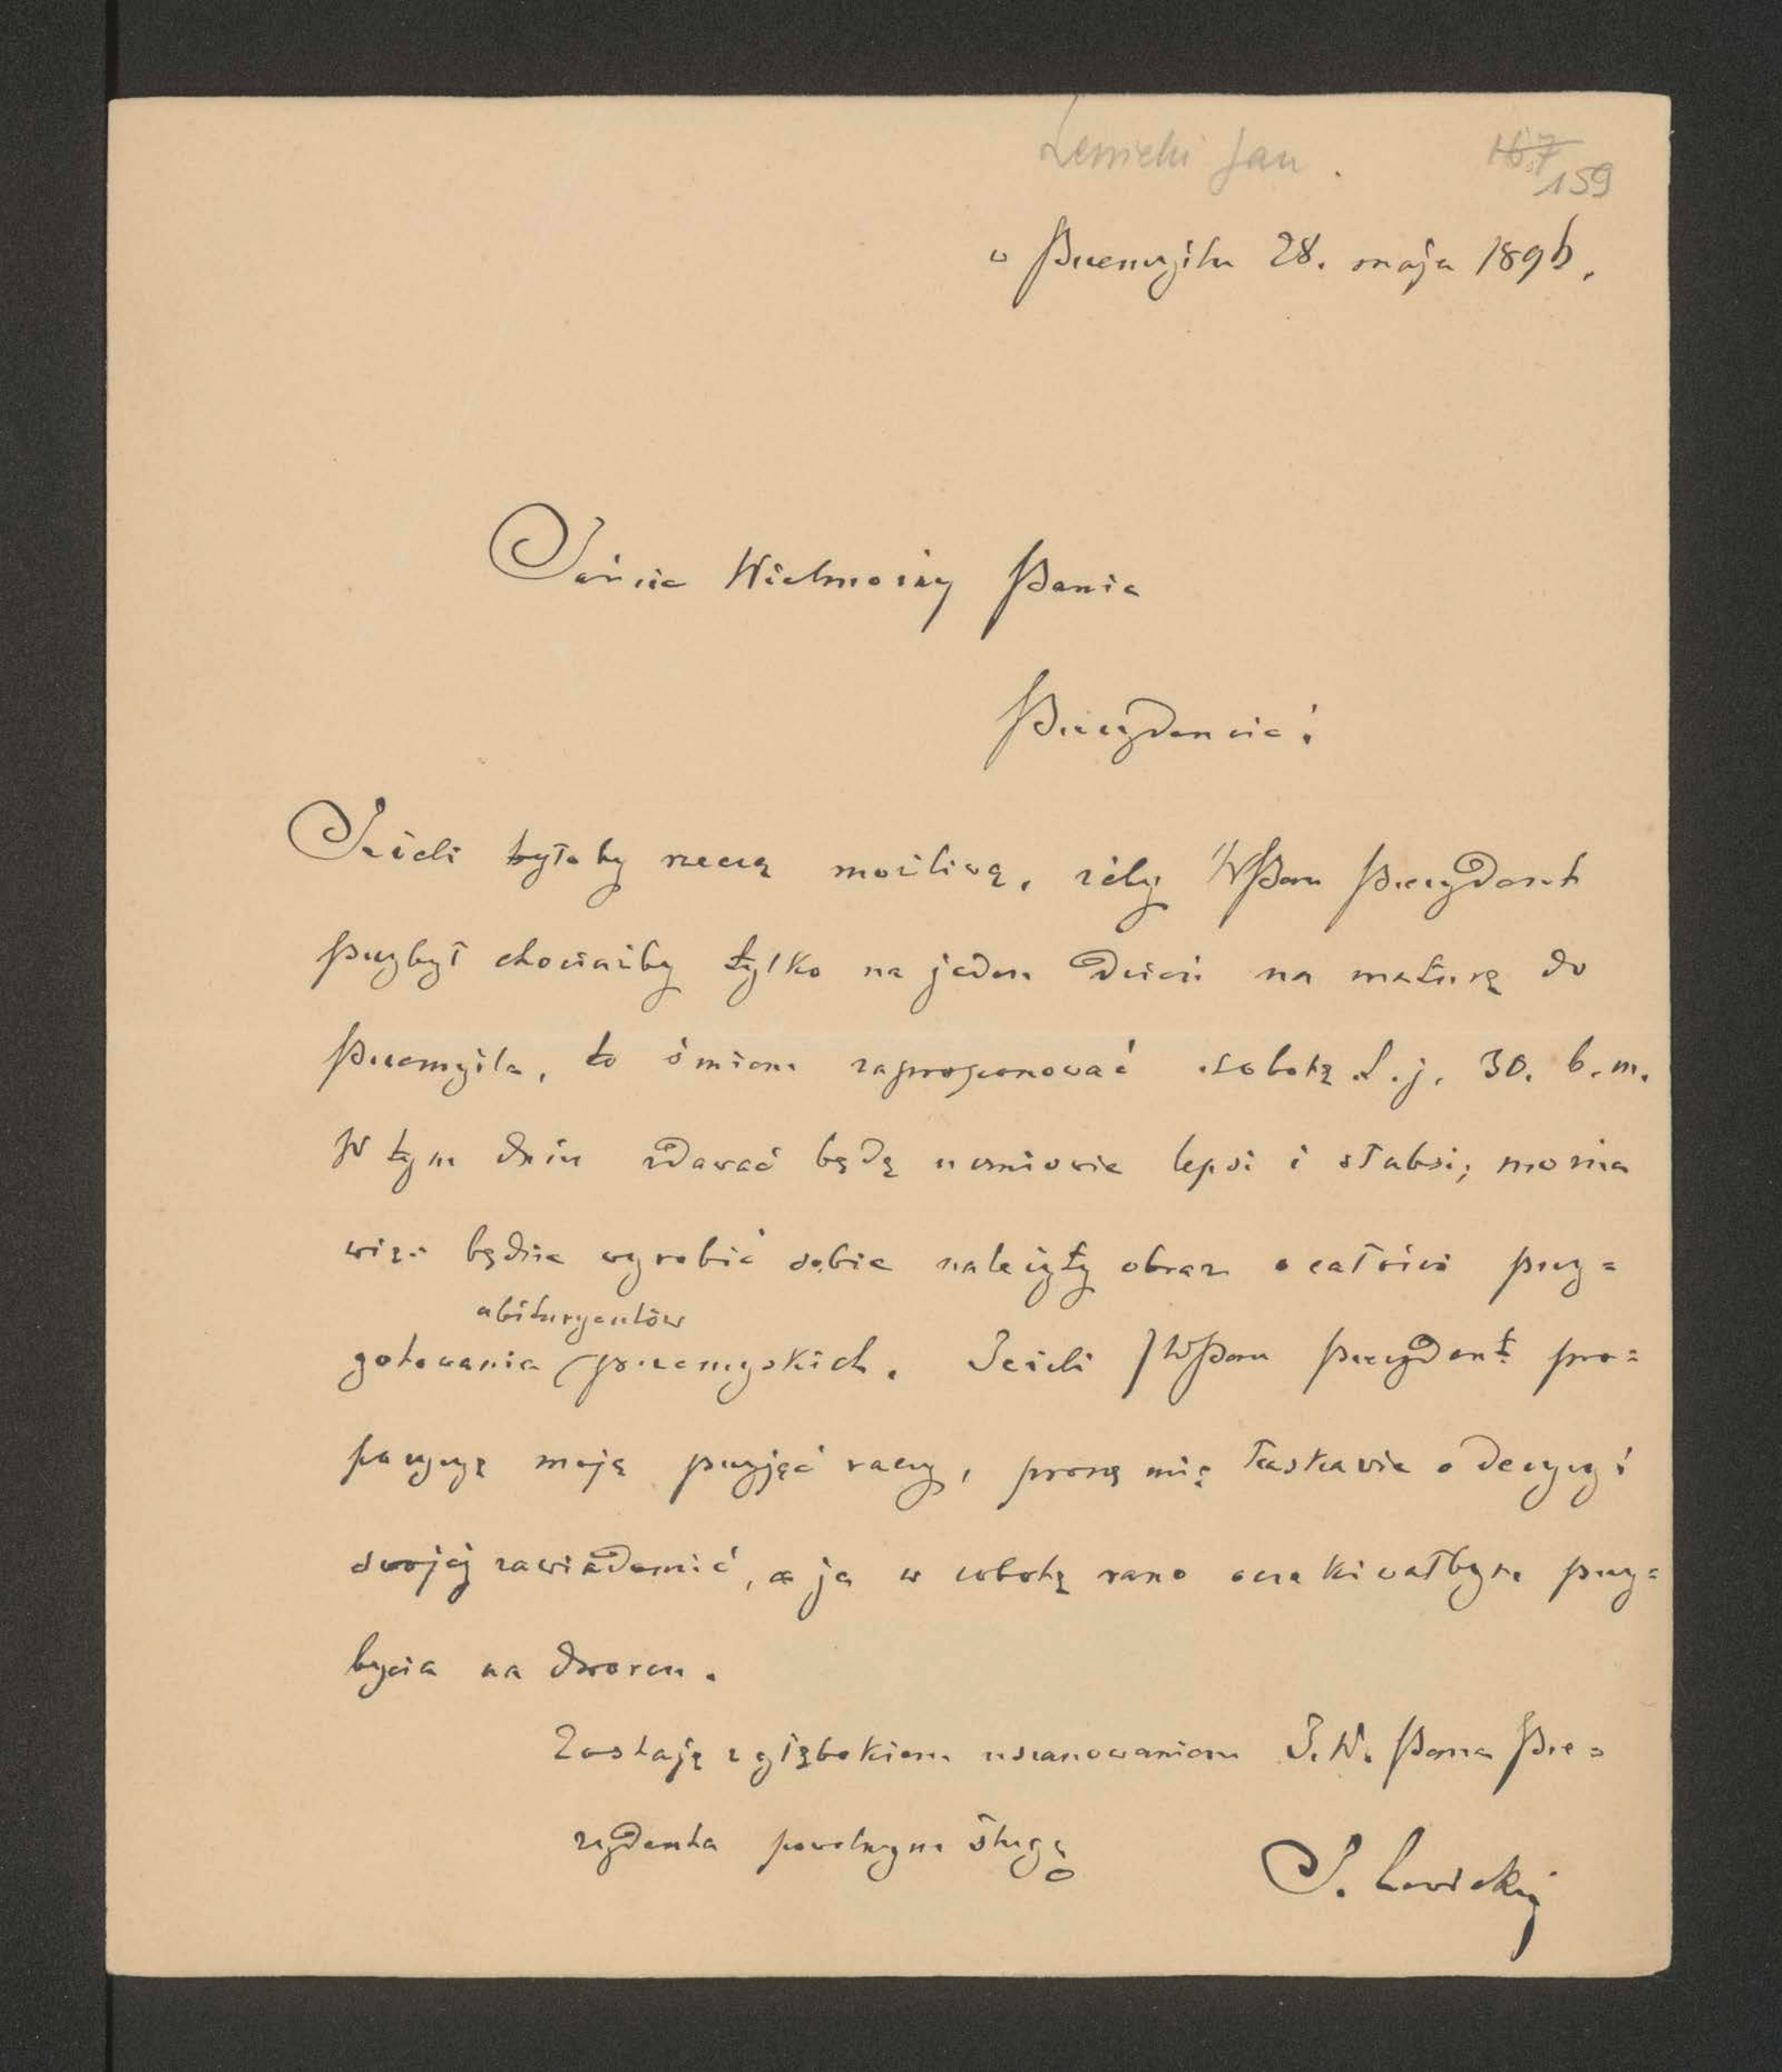 Lewicki Jan.
167 159
w Przemyślu 28. maja 1896.
Jaśnie Wielmożny Panie
Prezydencie!
Jeżeli byłoby rzeczą możliwą, żeby JWPan Prezydent
przybył chociażby tylko na jeden dzień na maturę do
Przemyśla, to śmiem zaproponować sobotę t.j. 30. b.m.
W tym dniu zdawać będą uczniowie lepsi i słabsi; można
więc będzie wyrobić sobie należyty obraz o całości przy=
abituryentów
gotowania przemyskich. Jeżeli JWPan Prezydent pro=
pozycyę moją przyjąć raczy, proszę mię łaskawie o decyzyi
swojej zawiadomić, a ja w sobotę rano oczekiwałbym przy=
bycia na dworcu.
Zostaję z głębokiem uszanowaniem J.W. Pana Pre=
zydenta powolnym sługą
J. Lewicki